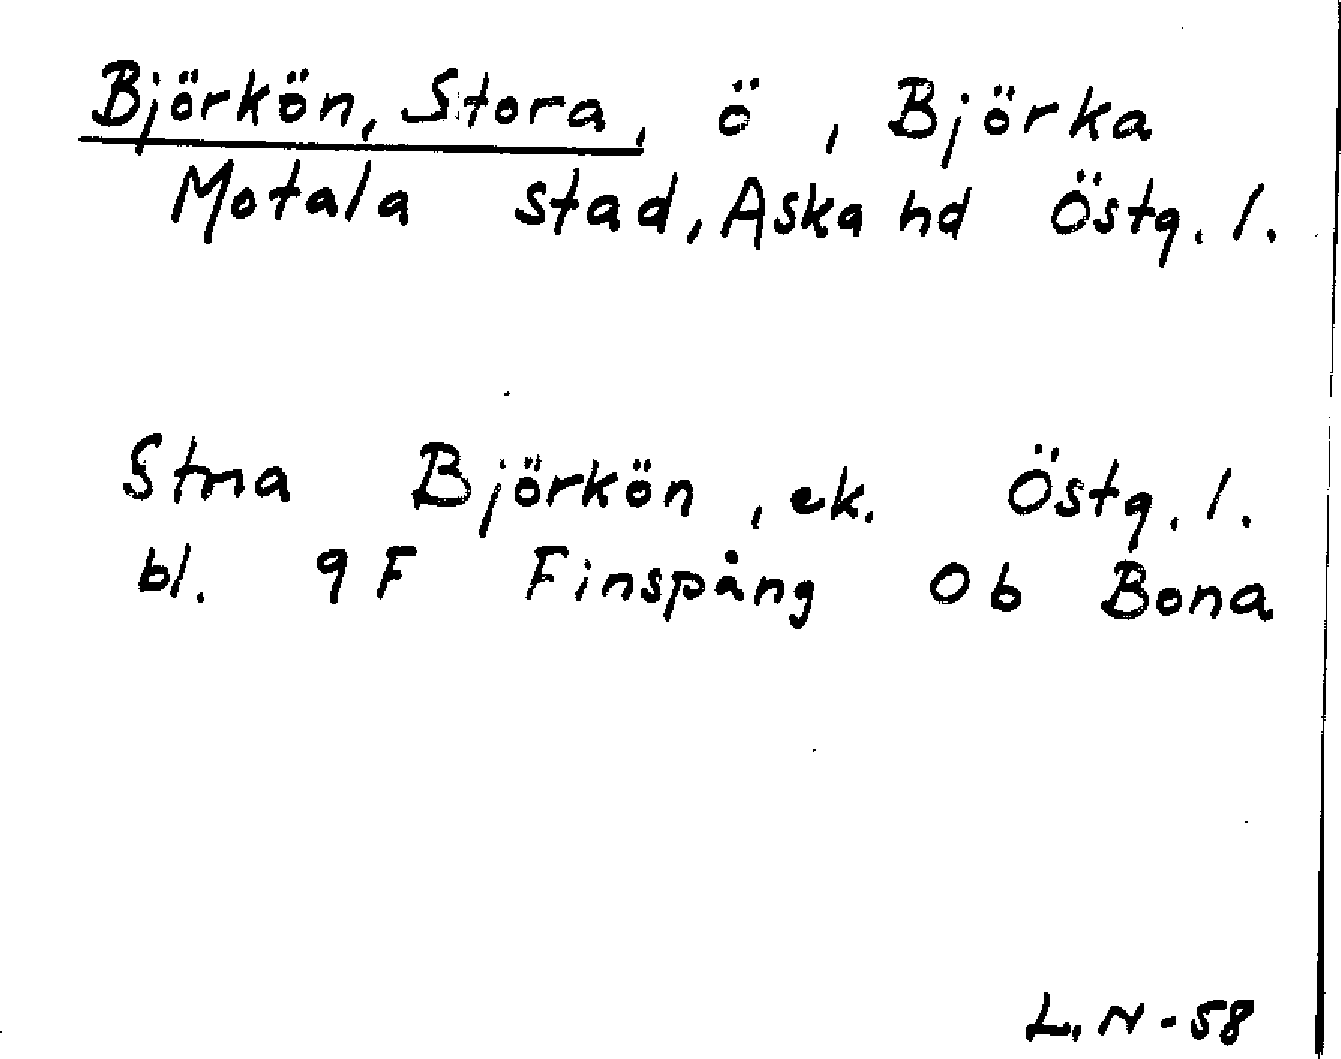 Björkön, Stora, ö, Björka
Motala stad, Aska hd Östg. l.
Stora Björkön, ek. Östg. l.
bl. 9F Finspång 0b Bona
L. N - 58